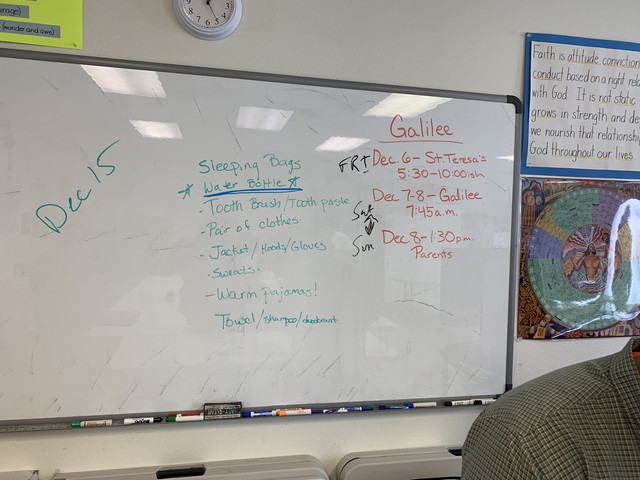 urage)
(wonder and awe)
Dec 15
Sleeping Bags
* Water Bottle *
- Tooth Brush/Tooth paste
- Pair of clothes.
- Jacket/Hoods/Gloves
- Sweats.
- Warm pajamas!
Towel/shampoo/deodorant
Galilee
FRI Dec. 6 - St. Teresa's
5:30-10:00ish
Sat Dec 7-8 - Galilee
7:45 a.m.
Sun Dec 8 - 1:30 p.m.
Parents
Faith is attitude, conviction
conduct based on a right rela
with God. It is not static
grows in strength and de
we nourish that relationshi
God throughout our lives